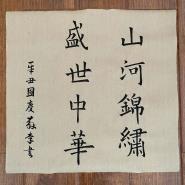 山河錦繡
盛世中華
辛丑國慶蘇李書